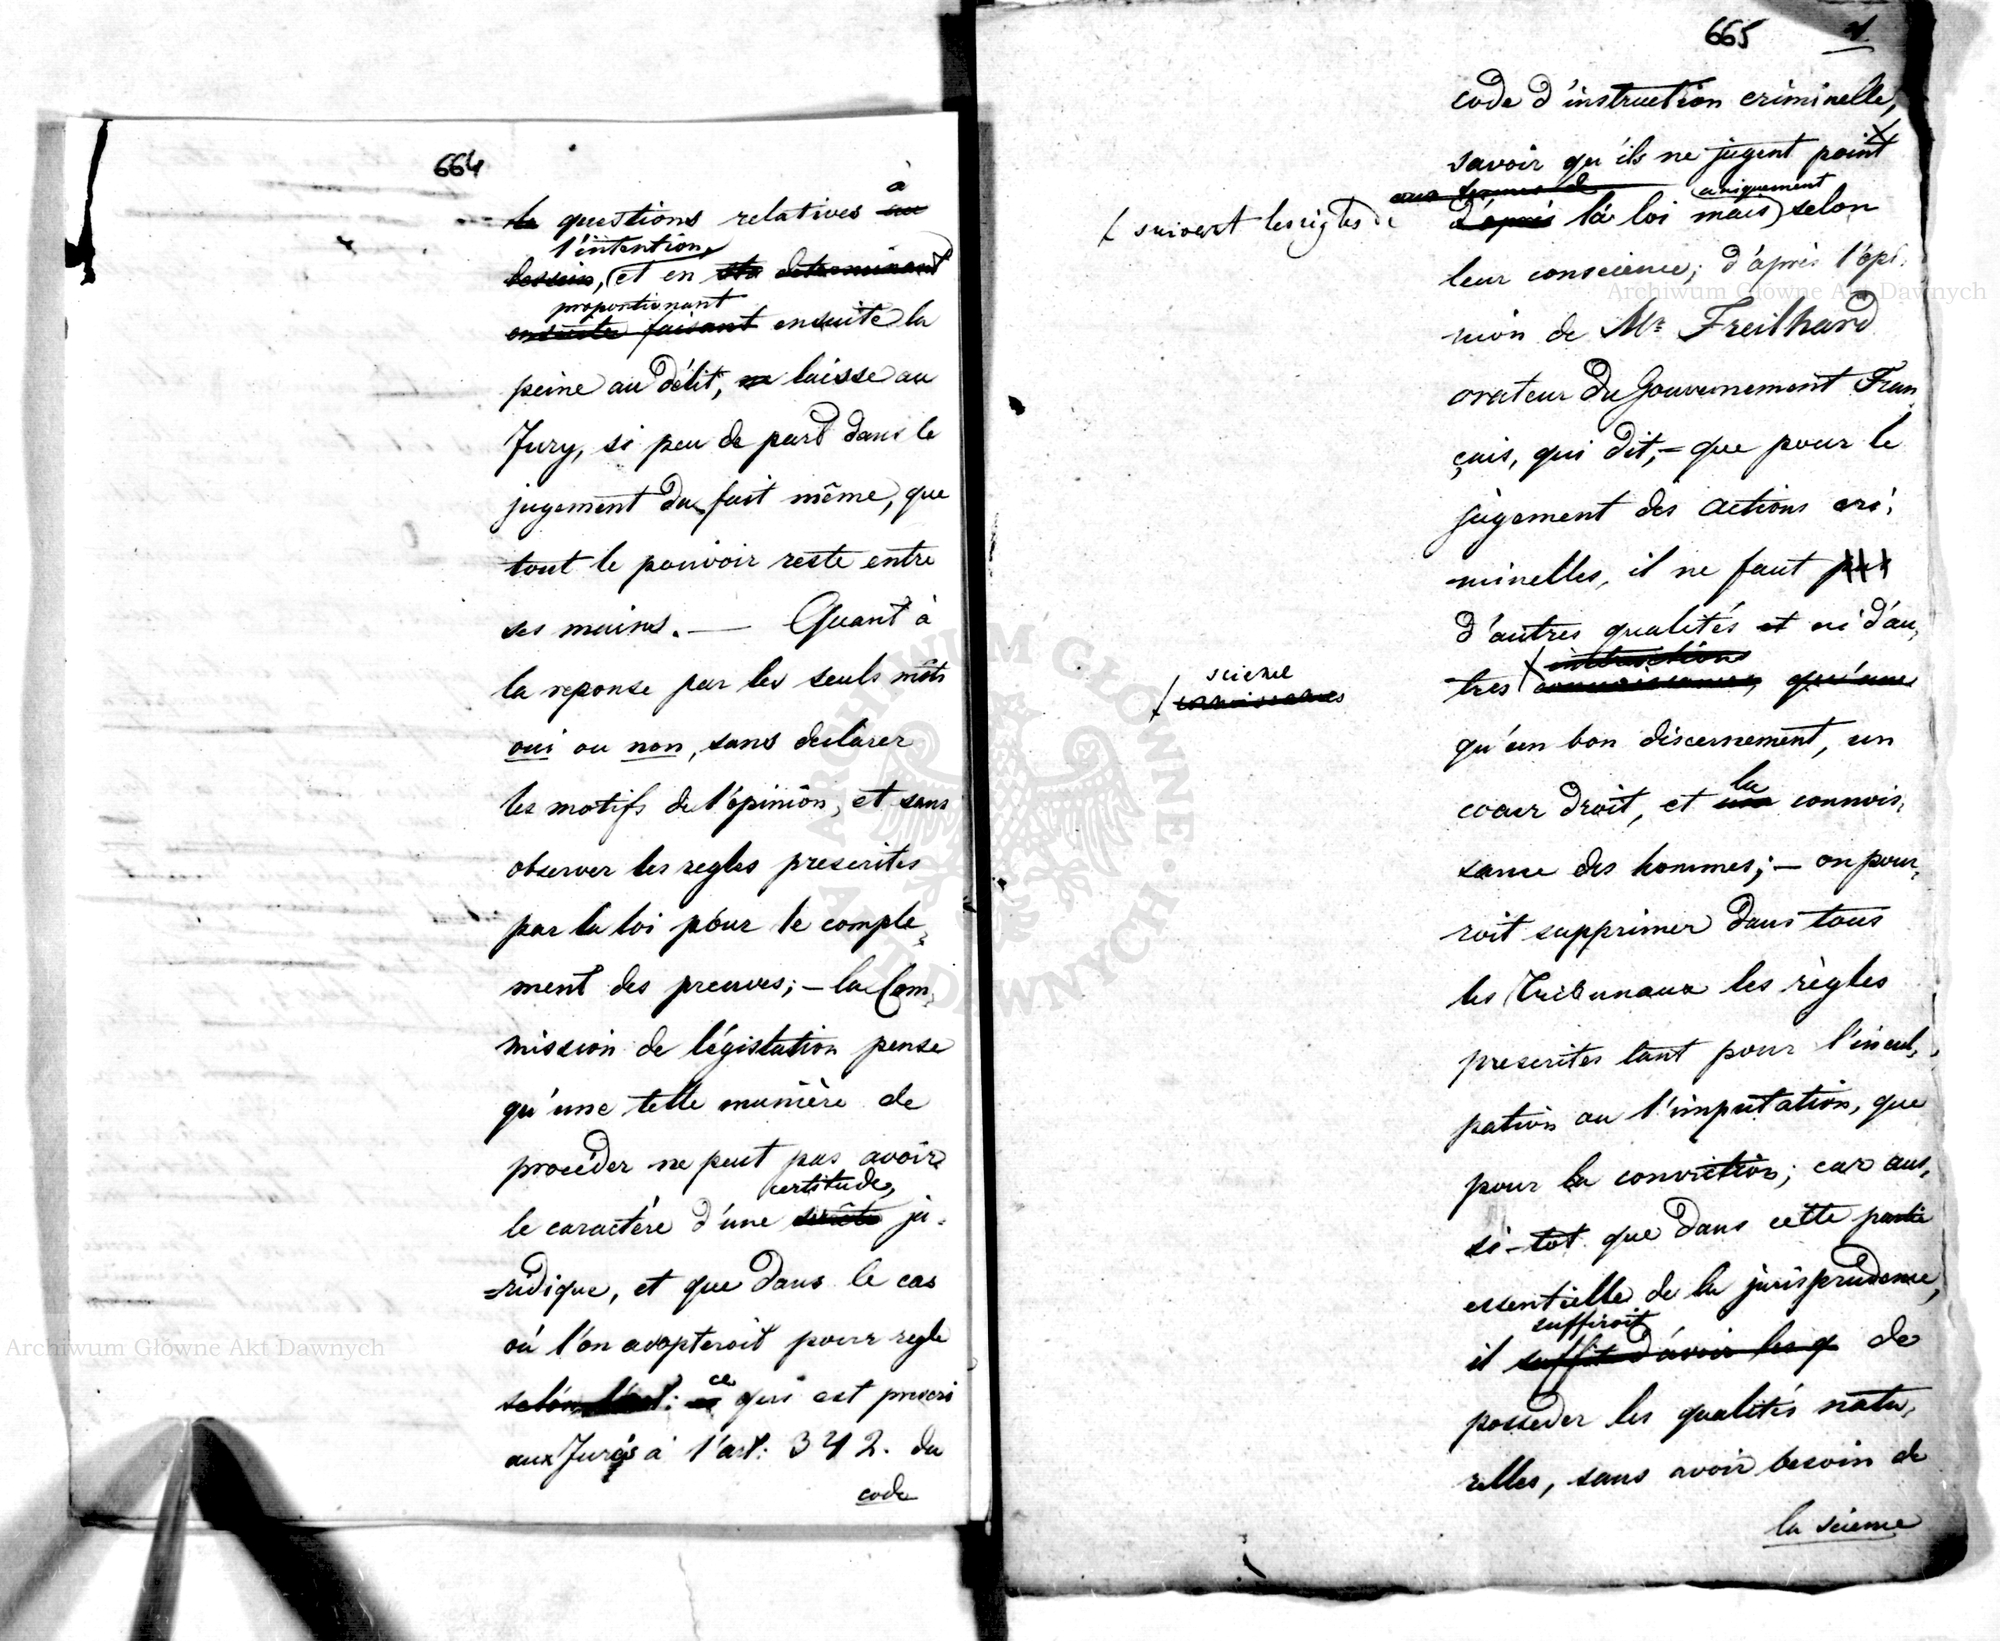 664
à
le questions relatives au
l'intention,
dessein, et en sta determinant
proportionant
ensuite faisant ensuite la
peine au délit, ne laisse au
Jury, si peu de part dans le
jugement du fait même, que
tout le pouvoir reste entre
ses mains. — Quant à
la reponse par les seuls mots
oui ou non, sans declarer
les motifs de l'opinion, et sans
observer les regles prescrites
par la loi pour le comple,
ment des preuves; — la Com,
mission de législation pense
qu'une telle manière de
procéder ne peut pas avoir
certitude,
le caractére d'une sureté ju-
=ridique, et que dans le cas
où l'on adopteroit pour regle
ce
selon l'art: qui est prescri
aux Jurés à l'art: 342. du
code
665
code d'instruction criminelle,
savoir qu'ils ne jugent point
aux termes de uniquement
suivant les règles de
d'après la loi mais selon
leur conscience; d'après l'opi-
nion de Mr Freilhard
orateur du Gouvernement Fran
çais, qui dit, = que pour le
jugement des actions cri,
minelles, il ne faut pas
d'autres qualités et ni d'au,
instructions
science
connoissances
tres connoissances, qu'une
qu'un bon discernement, un
la
coeur droit, et une connois,
sance des hommes; — on pour,
roit supprimer dans tous
les Tribunaux les règles
prescrites tant pour l'incul,
pation ou l'imputation, que
pour la conviction; car aus,
si-tot que dans cette partie
essentielle de la jurisprudence,
suffiroit
il suffit d'avoir les q de
posseder les qualités natu,
relles, sans avoir besoin de
la science
Archiwum Główne Akt Dawnych
Archiwum Główne Akt Dawnych
ARCHIWUM GŁÓWNE AKT DAWNYCH